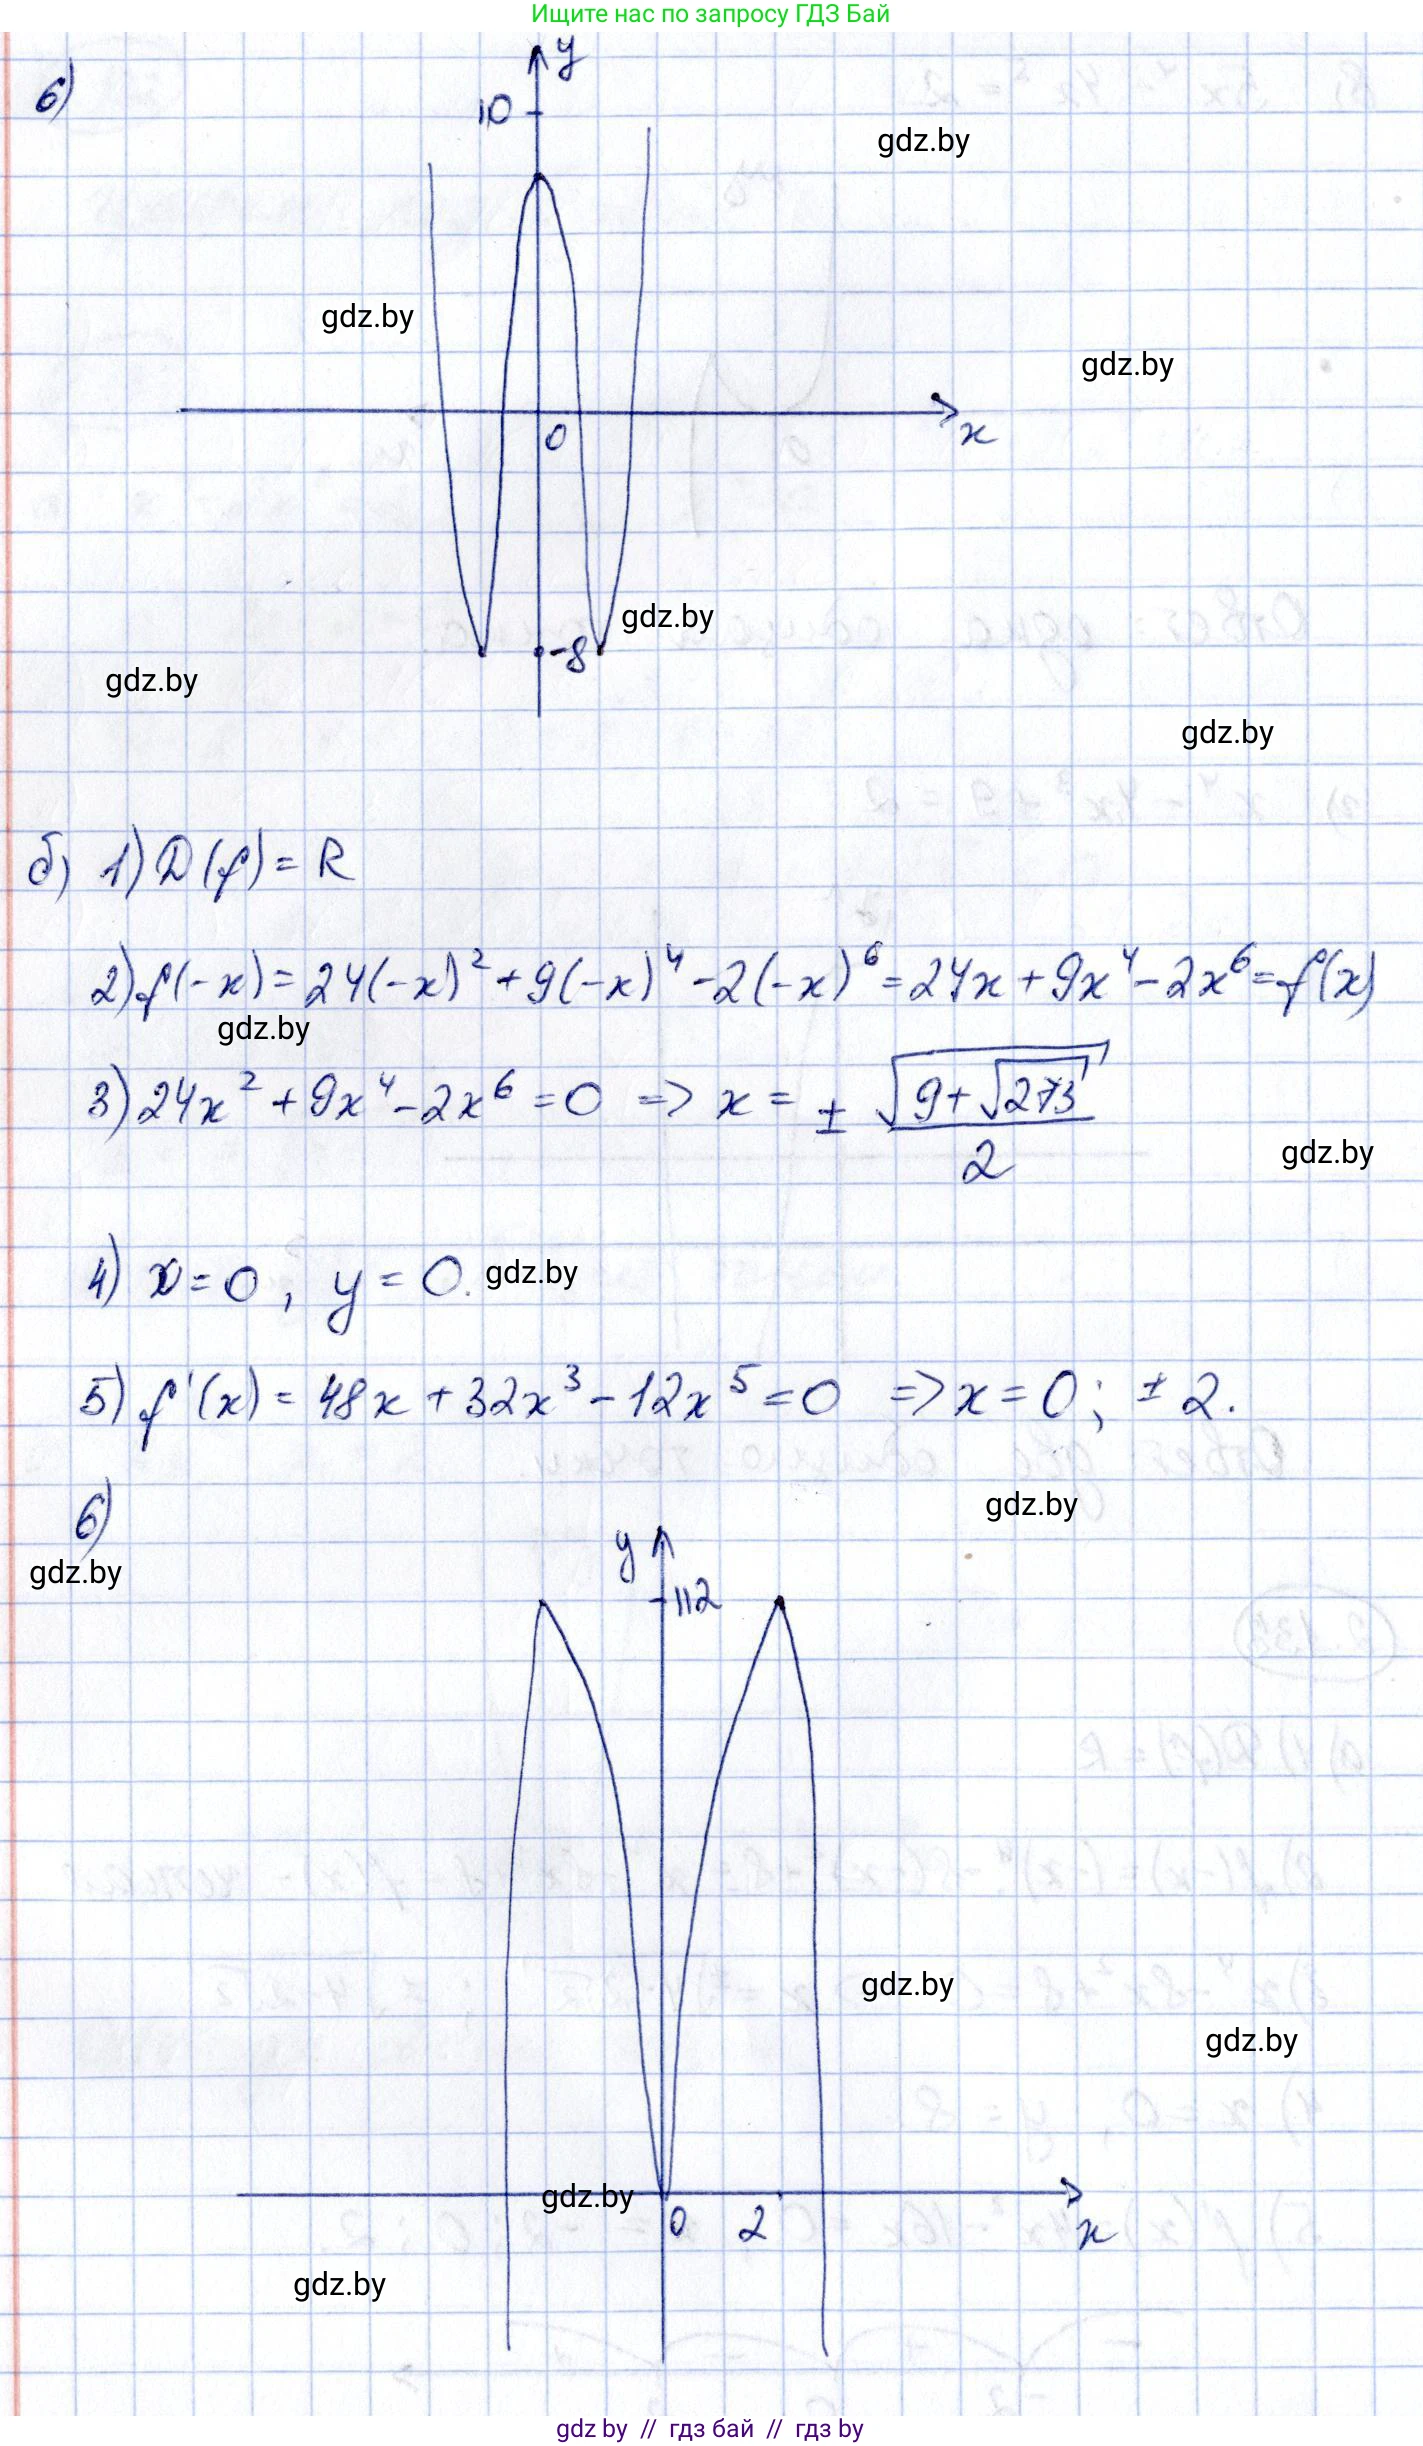 Ищите нас по запросу ГДЗ Бай
6)
y
10
gdz.by
gdz.by
gdz.by
0
x
gdz.by
-8
gdz.by
gdz.by
б) 1) D(f) = R
2) f(-x) = 24(-x)² + 9(-x)⁴ - 2(-x)⁶ = 24x + 9x⁴ - 2x⁶ = f(x)
gdz.by
3) 24x² + 9x⁴ - 2x⁶ = 0 => x = ± √(9+√273) / 2
gdz.by
4) x = 0, y = 0.
gdz.by
5) f'(x) = 48x + 32x³ - 12x⁵ = 0 => x = 0; ± 2.
6)
gdz.by
y
gdz.by
112
gdz.by
gdz.by
gdz.by
0 2
x
gdz.by
gdz by // гдз бай // гдз by